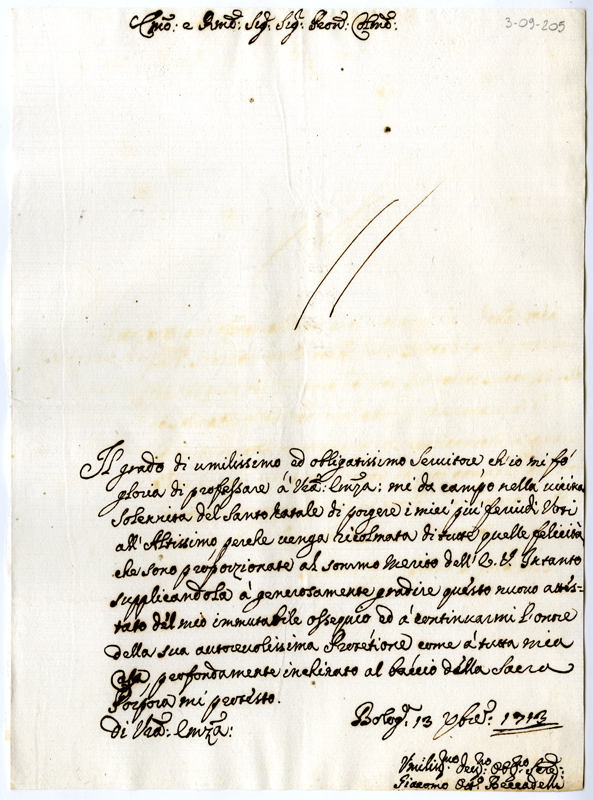 3-09-205
Emo: e Rmo: Sig: Sig: Pron: Colmo:
Il grado di umilissimo ed obbligatissimo Servitore ch'io mi fò
gloria di professare à Vra: Emza: mi da campo nella vicina
Solennità del Santo Natale di porgere i miei più fervidi Voti
all'Altissimo perche venga ricolmata di tutte quelle felicità
che sono proporzionate al sommo Merito dell' E. V. Intanto
supplicandola à generosamente gradire questo nuovo attes=
tato del mio immutabile ossequio ed à continuarmi l'onore
della sua autorevolissima Protetione come à tutta mia
Casa profondamente inchinato al baccio della Sacra
Porpora mi protesto.
Di Vra: Emza:
Bologa 13 Xbre: 1713
Umilismo devmo Obbmo Serre:
Giacomo Beccadelli